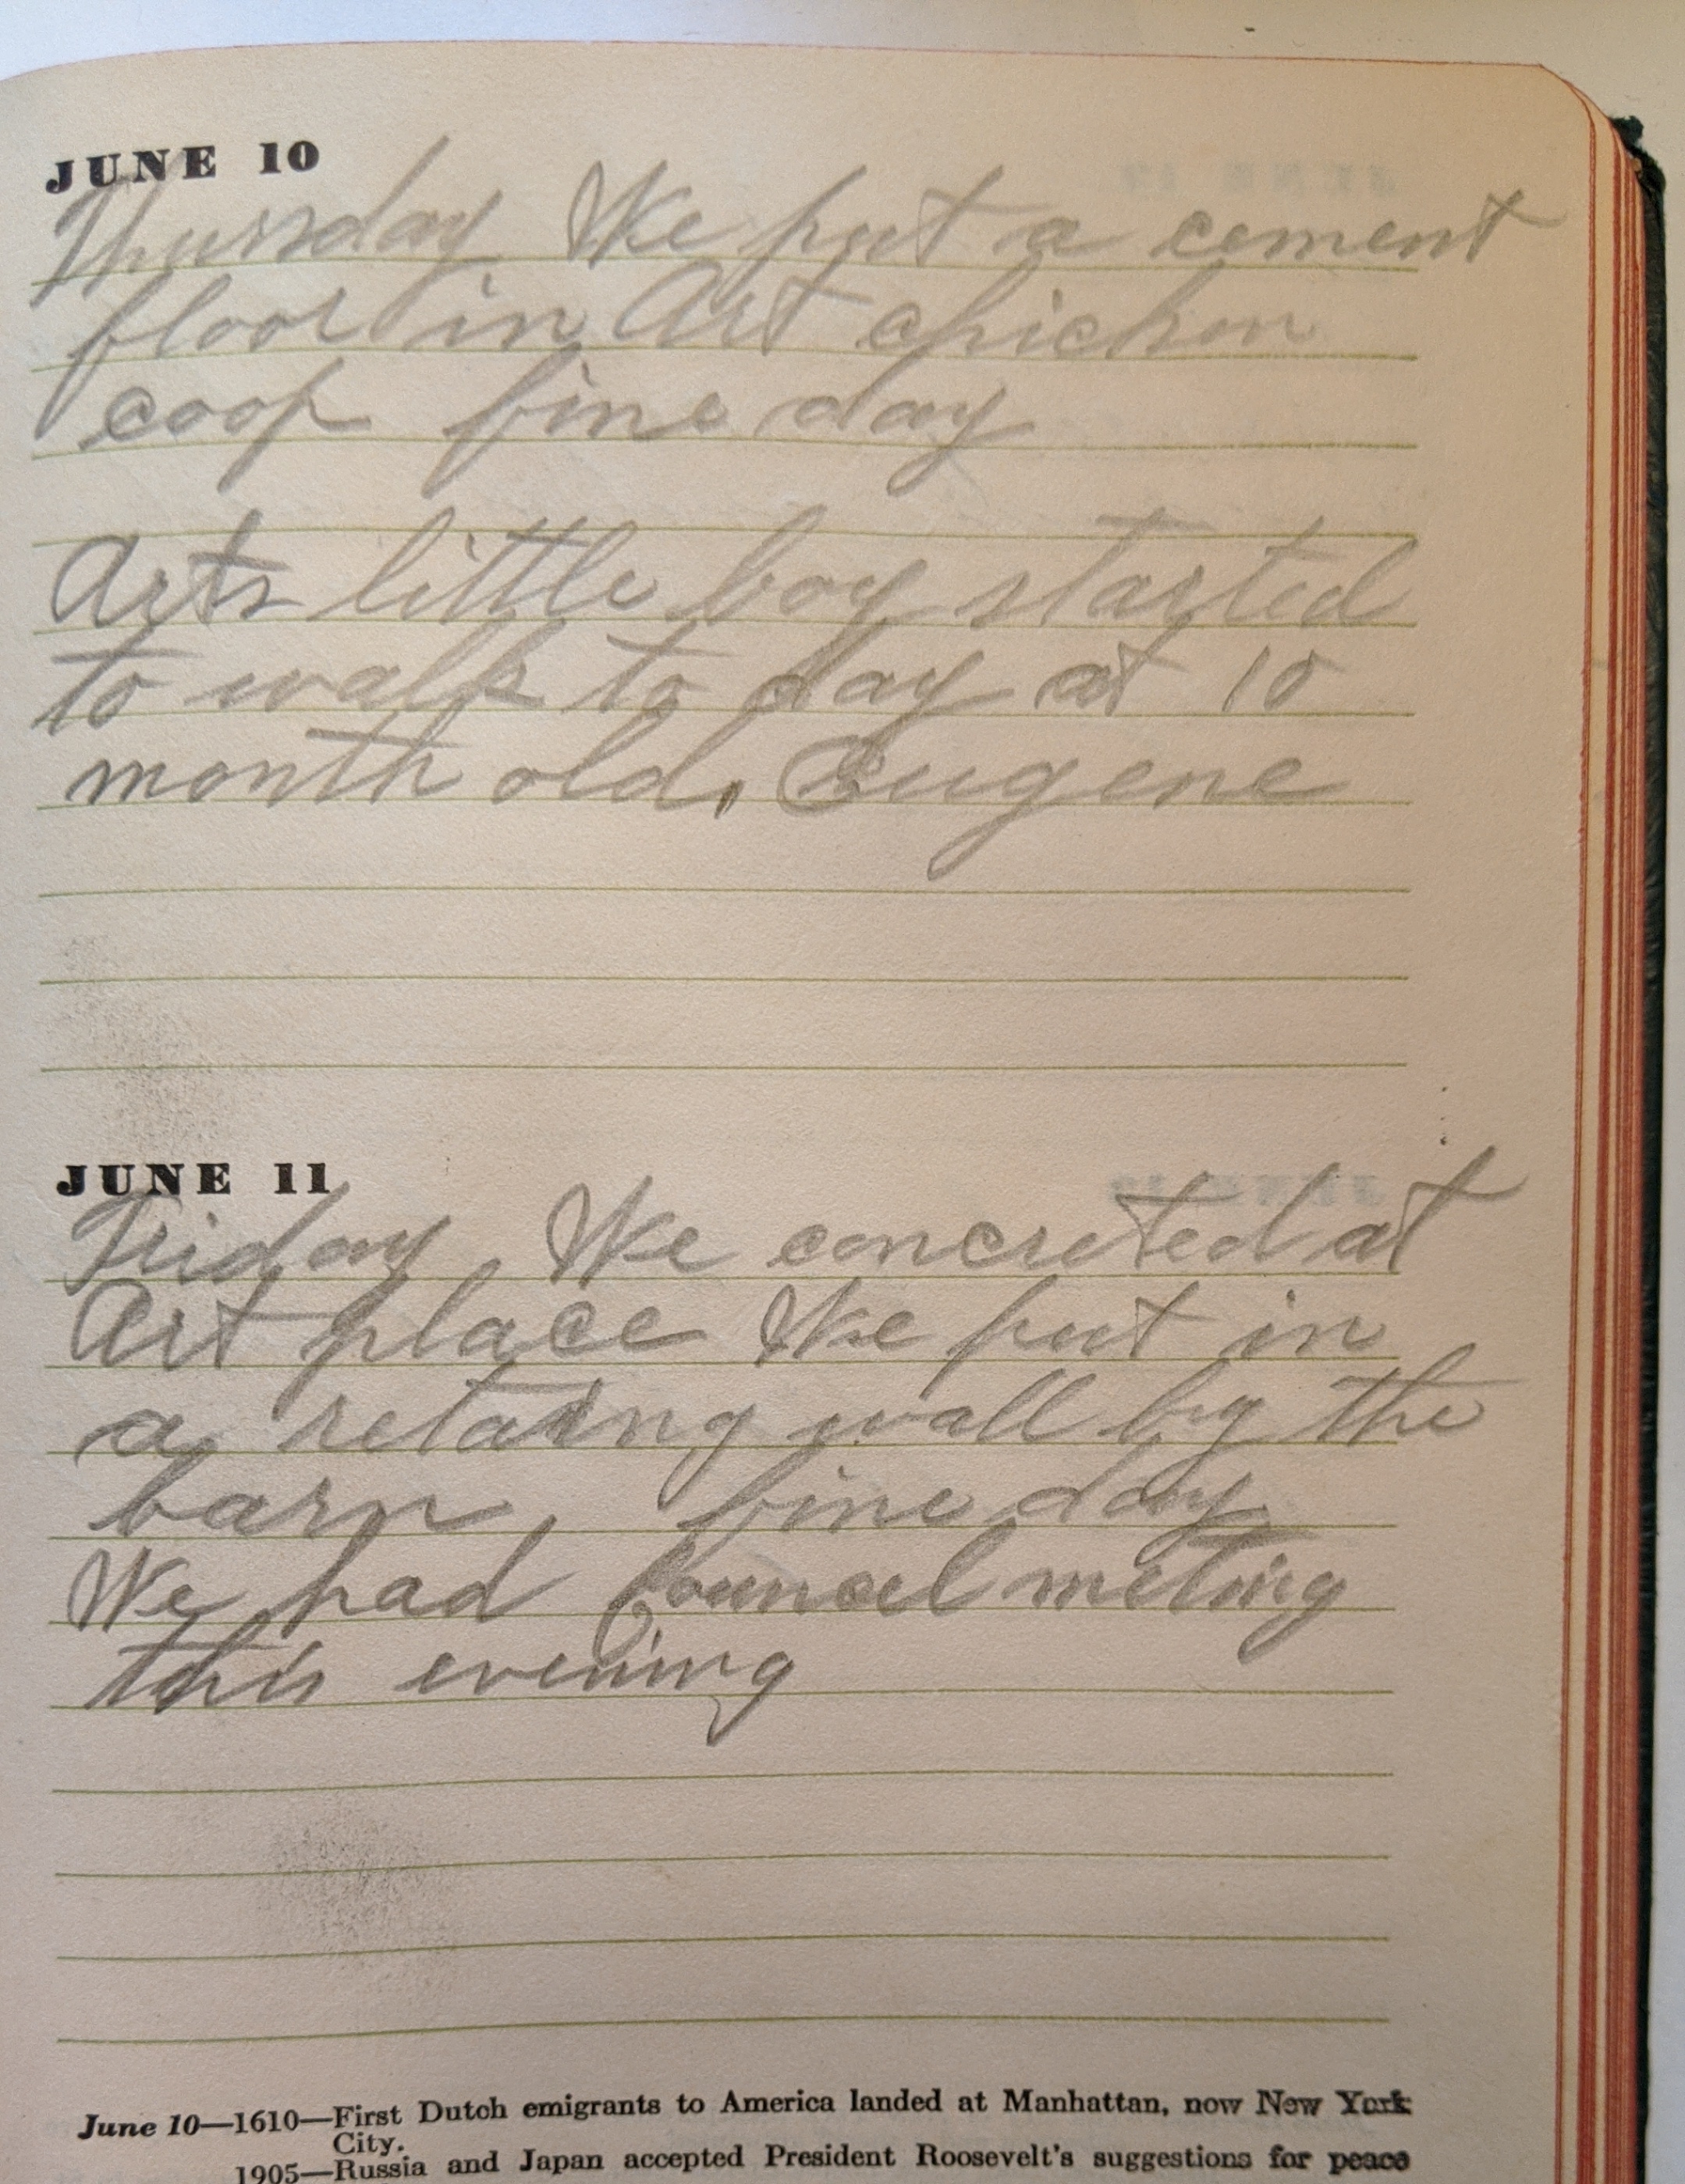 JUNE 10
Thursday We put a cement
floor in Art chicken
coop fine day
Arts little boy started
to walk to day at 10
month old, Eugene
JUNE 11
Friday, We concreted at
Art place We put in
a retaing wall by the
barn, fine day
We had Councel meting
this evening
June 10—1610—First Dutch emigrants to America landed at Manhattan, now New York
City.
1905—Russia and Japan accepted President Roosevelt's suggestions for peace